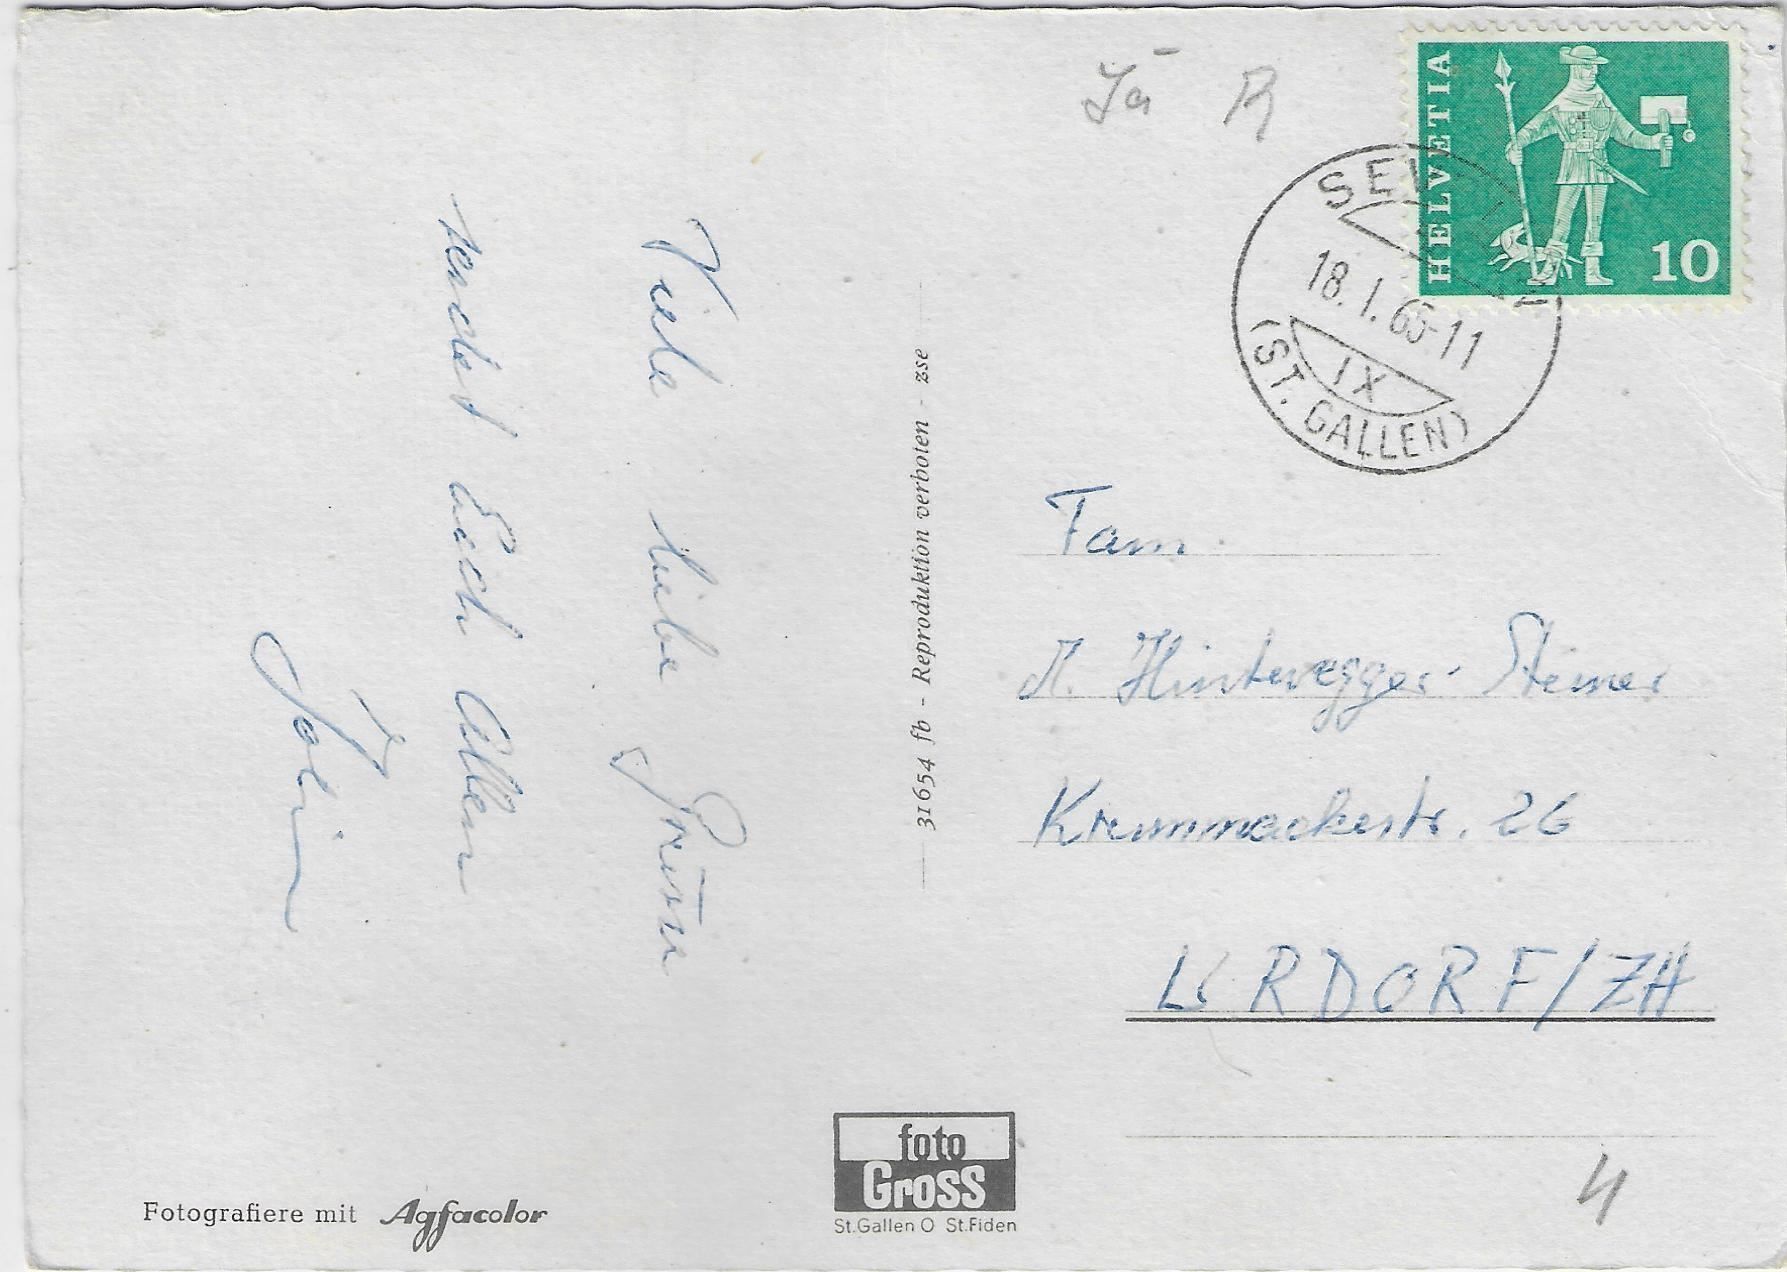 Viele liebe Grüsse
sendet Euch Allen
31654 fb – Reproduktion verboten – zse
Jā R
HELVETIA
10
18.1.65-11
IX
(ST. GALLEN)
Fam.
Hinteregger-Steiner
26
URDORF/ZH
foto
Gross
St.Gallen O St.Fiden
Fotografiere mit Agfacolor
4